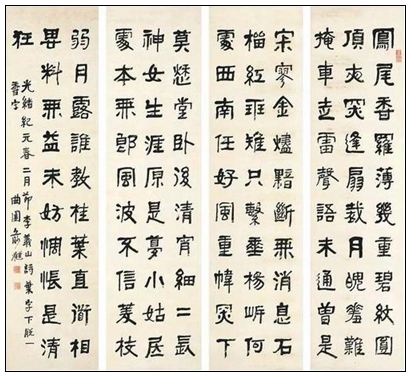 鳳尾香羅薄幾重碧紋圓
頂夜深縫扇裁月魄羞難
掩車走雷聲語未通曾是
寂寥金燼黯斷無消息石
榴紅斑騅只繫垂楊岸何
處西南任好風重幃深下
莫愁堂臥後清宵細二長
神女生涯原是夢小姑居
處本無郎風波不信菱枝
弱月露誰教桂葉直道相
思料無益未妨惆悵是清
狂
光緒紀元春二月節李義山詩葉字下脫一
香字
曲園俞樾